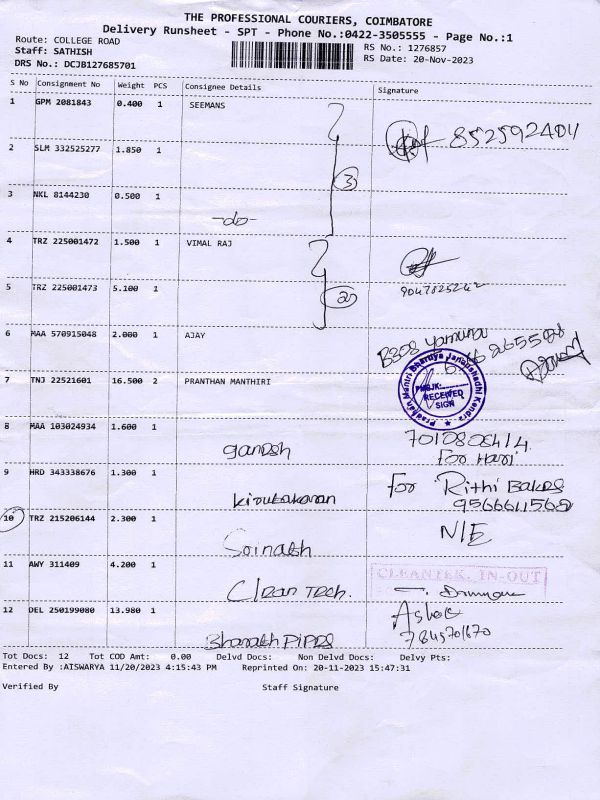 THE PROFESSIONAL COURIERS, COIMBATORE
Delivery Runsheet - SPT - Phone No.:0422-3505555 - Page No.:1
Route: COLLEGE ROAD RS No.: 1276857
Staff: SATHISH RS Date: 20-Nov-2023
DRS No.: DCJB127685701
S No Consignment No Weight PCS Consignee Details Signature
1 GPM 2081843 0.400 1 SEEMANS
2 SLM 332525277 1.850 1
3
3 NKL 8144230 0.500 1
-do-
4 TRZ 225001472 1.500 1 VIMAL RAJ
5 TRZ 225001473 5.100 1
2
6 MAA 570915048 2.000 1 AJAY
B308 Yamuna
7 TNJ 22521601 16.500 2 PRANTHAN MANTHIRI
Pradhan Mantri Bhartiya Janaushadhi Kendra
RECEIVED
SIGN
8 MAA 103024934 1.600 1
ganesh
For Hari
9 HRD 343338676 1.300 1
Kirubakaran for Rithi Bakes
10 TRZ 215206144 2.300 1
Srinath N/E
11 AWY 311409 4.200 1
Clean Tech. CLEANTEK. IN-OUT
12 DEL 250199080 13.980 1
Bharath Pipes Ashok
7845701670
Tot Docs: 12 Tot COD Amt: 0.00 Delvd Docs: Non Delvd Docs: Delvy Pts:
Entered By :AISWARYA 11/20/2023 4:15:43 PM Reprinted On: 20-11-2023 15:47:31
Verified By Staff Signature